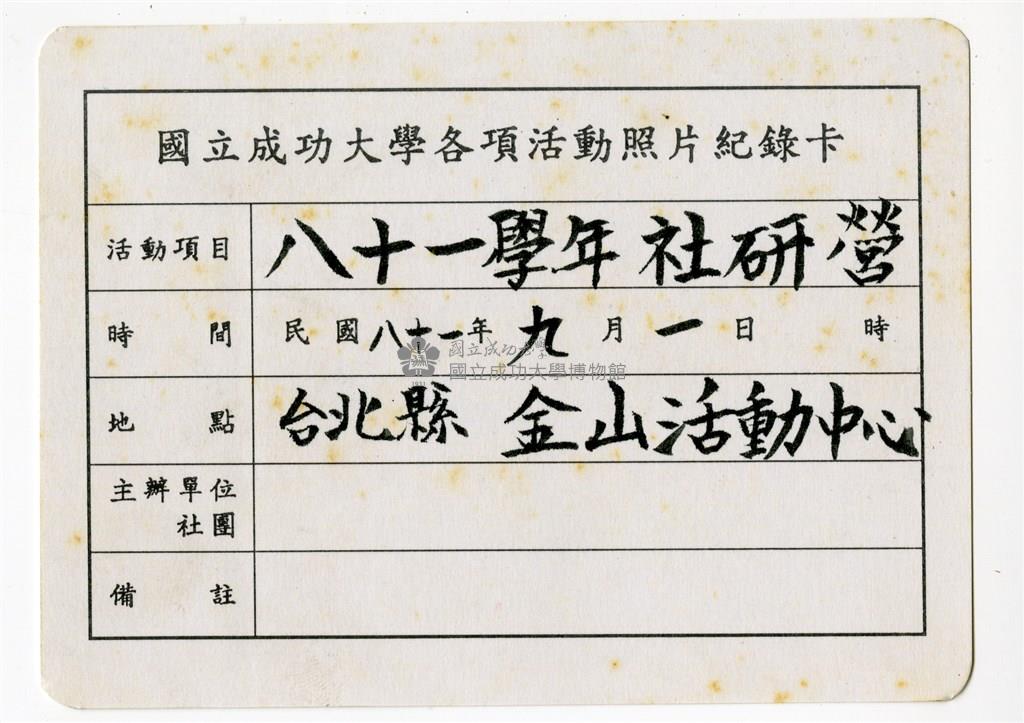 國立成功大學各項活動照片紀錄卡
活動項目 八十一學年 社研營
時間 民國八十一年九月一日 時
國立成功大學
國立成功大學博物館
1931
地點 台北縣 金山活動中心
主辦單位
社團
備註